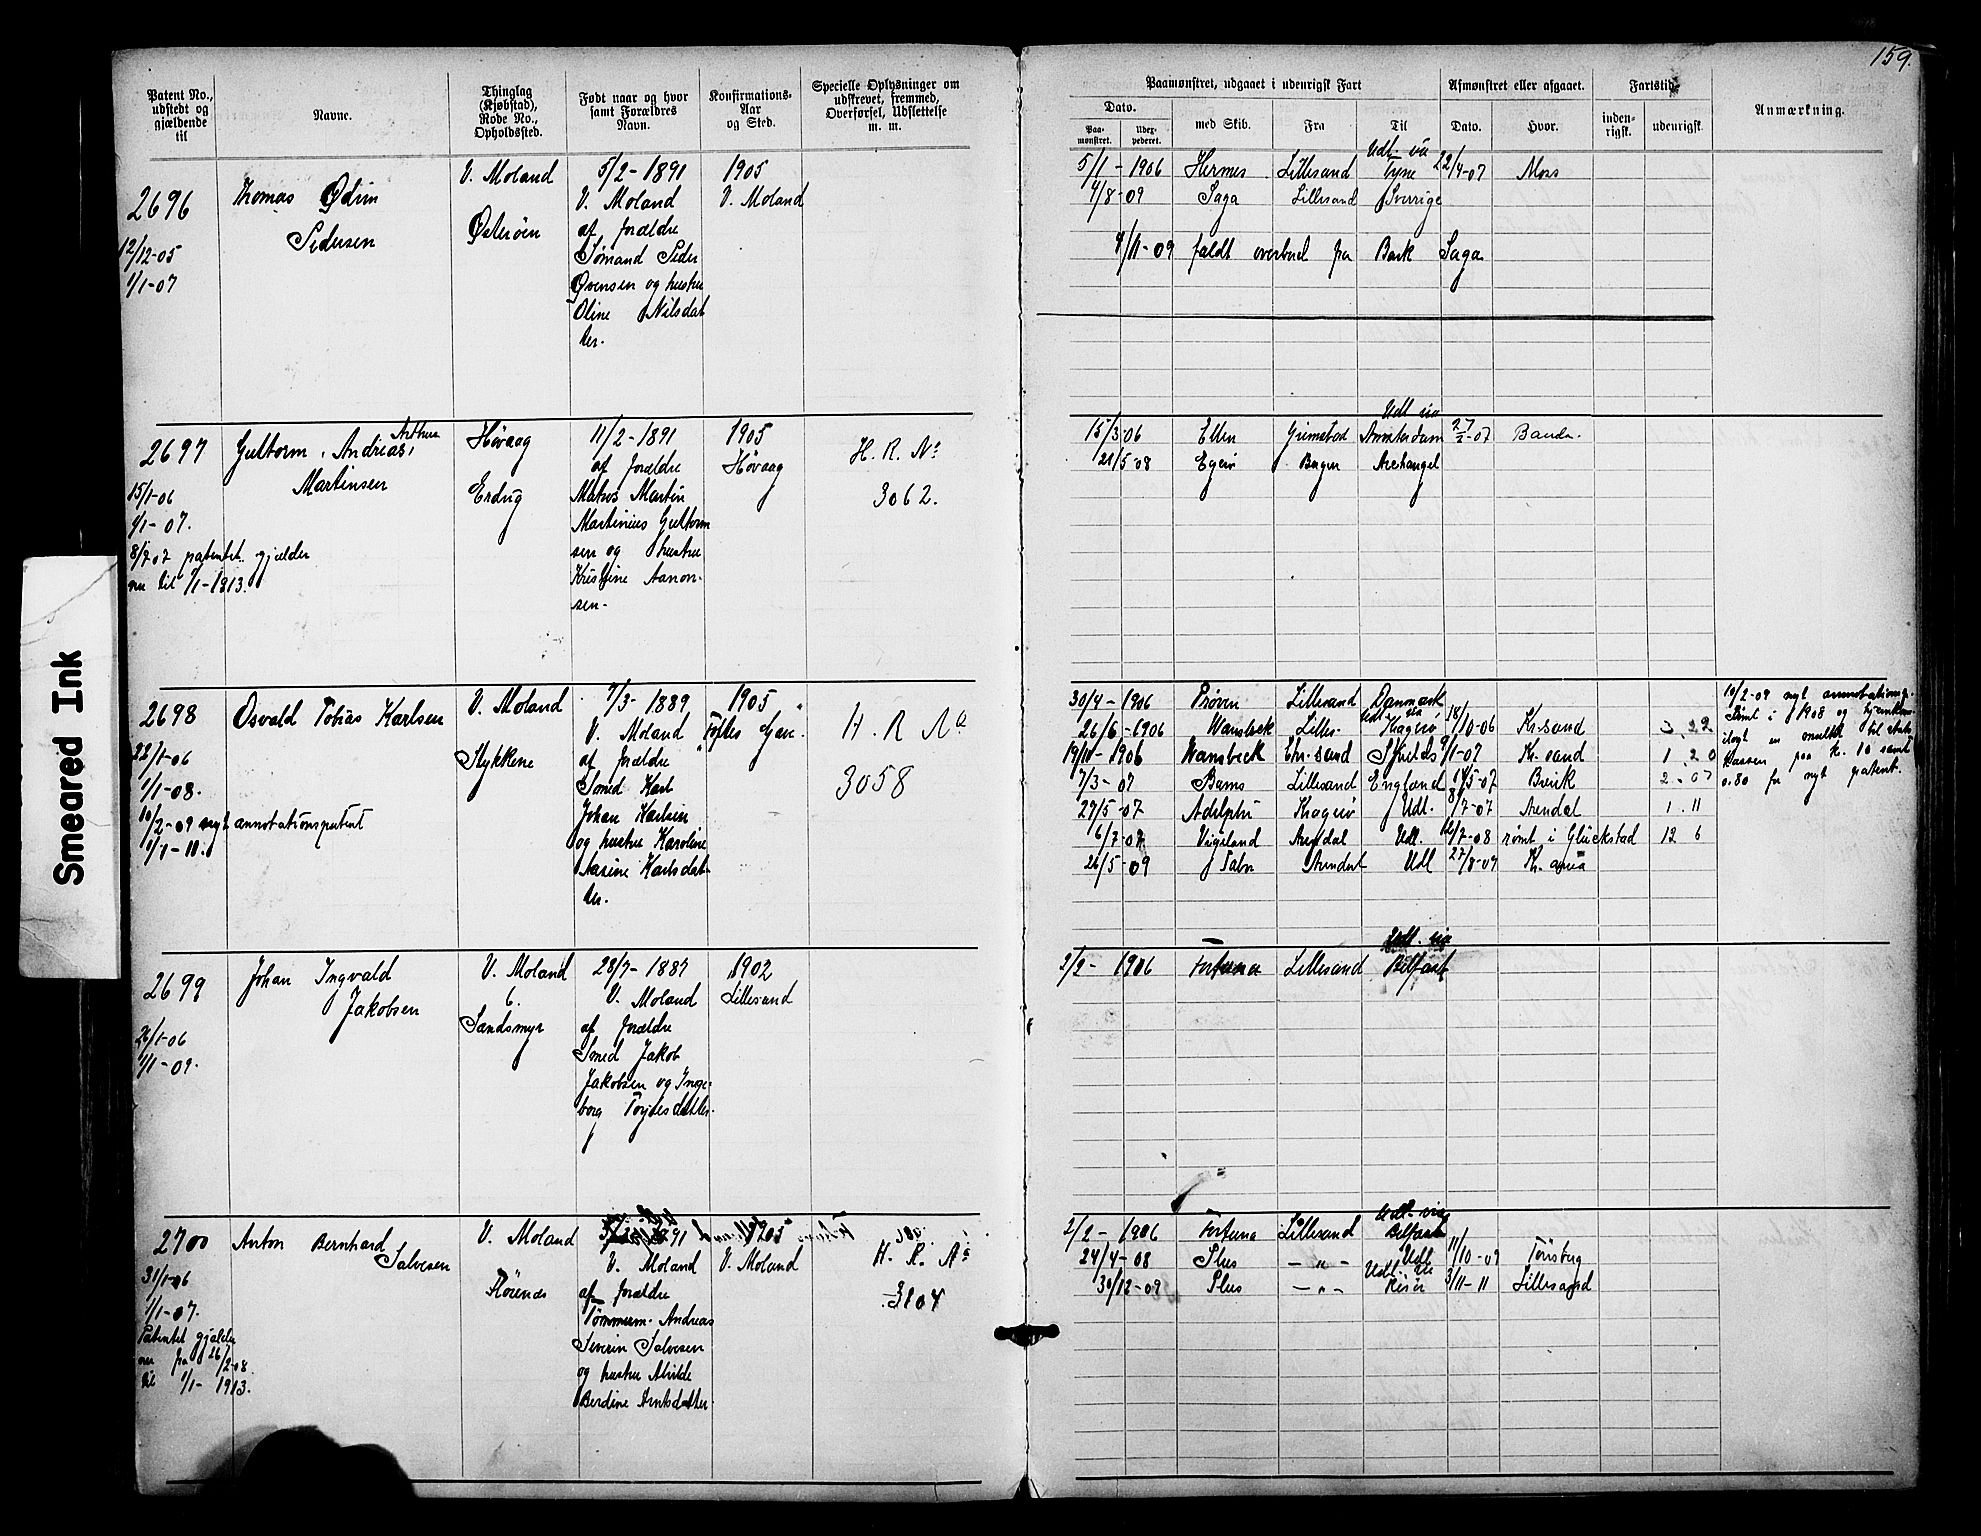 159.
Patent No., udstedt og gjældende til
Navne.
Thinglag (Kjøbstad), Rode No., Opholdssted.
Født naar og hvor samt Forældres Navn.
Konfirmations-Aar og Sted.
Specielle Oplysninger om udskrevet, fremmed, Overførsel, Udslettelse m. m.
Paamønstret, udgaaet i udenrigsk Fart
Dato.
Paa-mønstret.
Udex-pederet.
med Skib.
Fra
Til
Afmønstret eller afgaaet.
Dato.
Hvor.
Fartstid
inden-rigsk.
udenrigsk.
Anmærkning.
2696
12/12-05
1/1-07
Thomas Odin
Pedersen
V. Moland
Østerøen
5/2-1891
V. Moland
af forældre
Sømand Peder
Evensen og hustru
Oline Nilsdat
ter.
1905
V. Moland
5/1-1906 Hermes Lillesand Udl. via Tyne 22/4-07 Moss
4/8-09 Saga Lillesand Sverige
4/11-09 faldt overbord fra Bark Saga
2697
15/1-06
1/1-07.
8/7 07 patentet gjælder
nu til 1/1-1913.
Guttorm Andreas Arthur
Martinsen
Høvaag
11/2-1891
af forældre
Martin
Martinius Guttorm
sen og hustru
Kristine Aanon-
sen.
1905
Høvaag
H. R. No
3062.
15/3-06 Ellen Grimstad Udl via Amsterdam 27/2-07
21/5-08 Egerø Archangel
2698
22/1-06
1/1-08.
10/2-09 nyt annotationspatent
1/1-11.
Osvald Tobias Karlsen
V. Moland
Stykkene
7/3-1889
V. Moland
af forældre
Smed Karl
Johan Karlsen
og hustru Karoline
Nasine Karlsdat-
ter.
1905
H. R No
3058
30/4-1906 Prøven Lillesand Danmark
26/6-1906 Wansbeck Lilles- Udl via Kragerø 18/10-06 Kr.sand 3 22
19/11-1906 Wansbeck Chr.sand Shields 9/1-07 Kr. sand 1 20
7/3-07 Bams Lillesand England 14/5-07 Brevik 2-07
27/5-07 Adelphi Kragerø Udl. 8/7-07 Arendal 1.11
6/7-07 Vigeland Arendal Udl. 12/7-08 rømt i Glückstad 12 6
26/5-09 Tabor Arendal Udl 27/8-09 Kr. ania
10/2-09 nyt annotationsp.
Rømt i 1908 og
ilagt en mulkt til stats
kassen paa kr. 10 samt
0.80 for nyt patent.
2699
26/1-06
1/1-09.
Johan Ingvald
Jakobsen
V. Moland
6.
Sandsmyr
28/7-1887
V. Moland
af forældre
Smed Jakob
Jakobsen og Inge-
borg Terjesdatter.
1902
Lillesand
2/2-1906 Fortuna Lillesand Udl. via Belfast
2700
31/1-06
1/1-07.
Patentet gjælder
nu fra 26/2-08
til 1/1-1913.
Anton Bernhard
Salvesen
V. Moland
1891
V. Moland
af forældre
Tømmerm. Andreas
Severin Salvesen
og hustru Alvilde
Berdine Arntsdatter.
1905
V. Moland
H. R. No
3104
2/2-1906 Fortuna Lillesand Udl. via Belfast
24/4-08 Plus — " — Udl 11/10-09 Tønsberg
30/12-09 Plus — " — Udl. via Risør 3/11-11 Lillesand
Smeared Ink